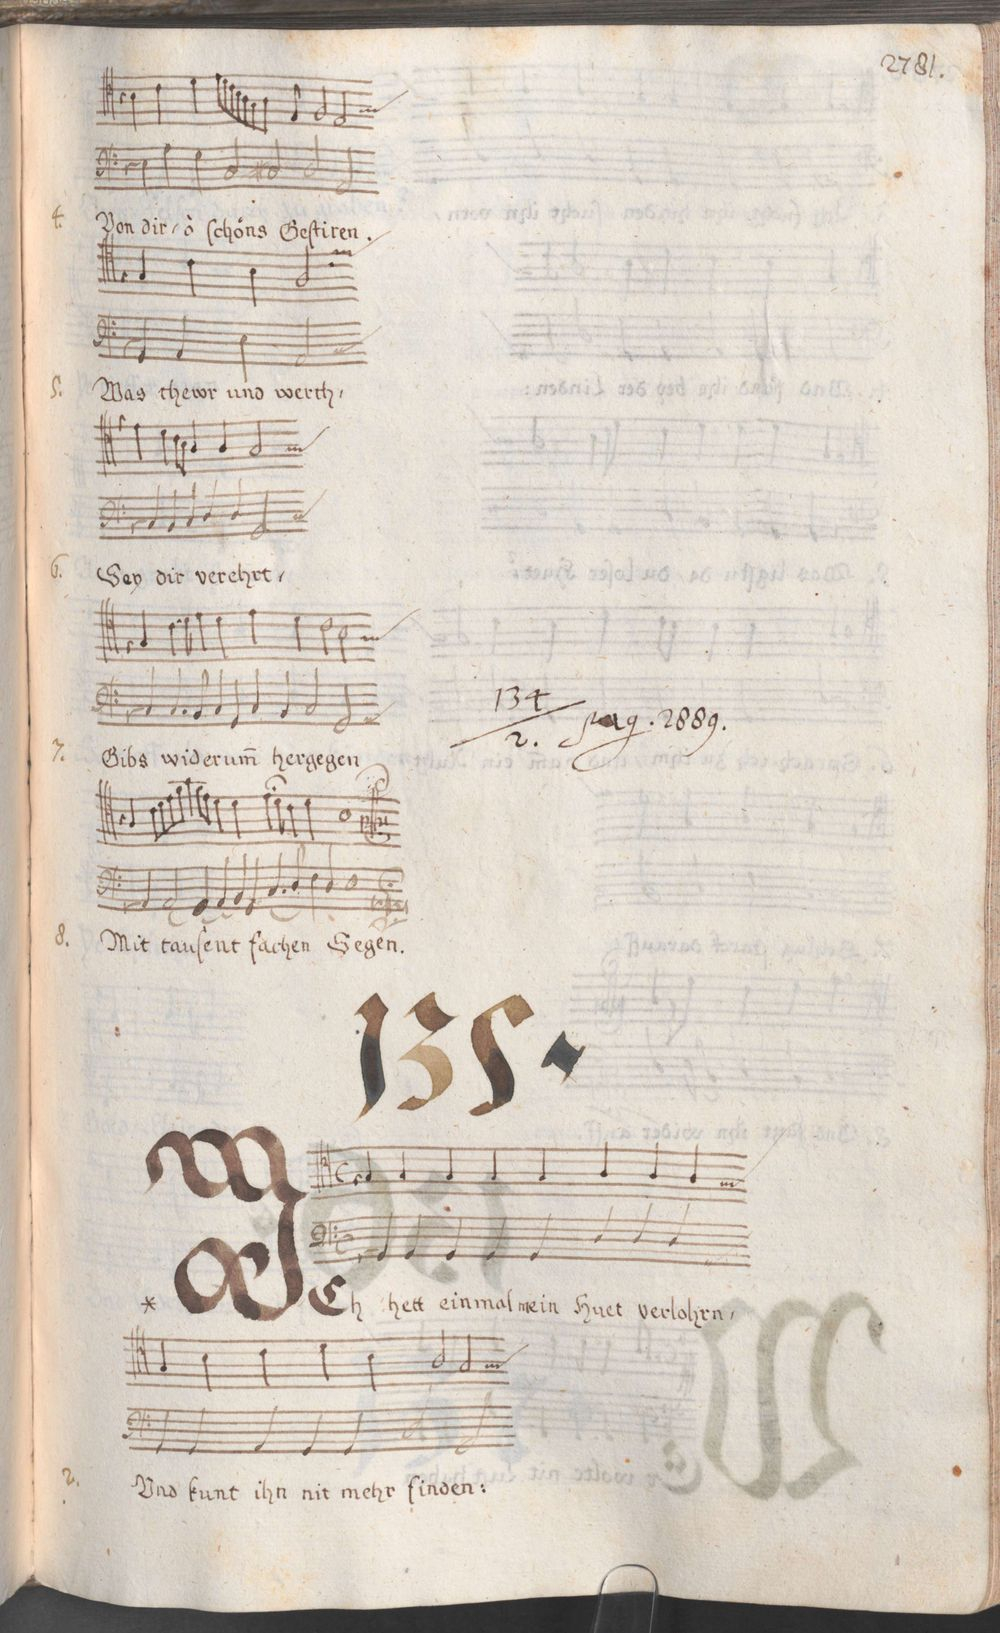 2781.
4. Von dir, ò schöns Gestiren.
5. Was thewr und werth,
6. Sey dir verehrt,
134/2. pag. 2889.
7. Gibs widerum̄ hergegen
8. Mit tausent fachen Segen.
135.
* Ich hett einmal mein Huet verlohrn,
2. Und kunt ihn nit mehr finden: